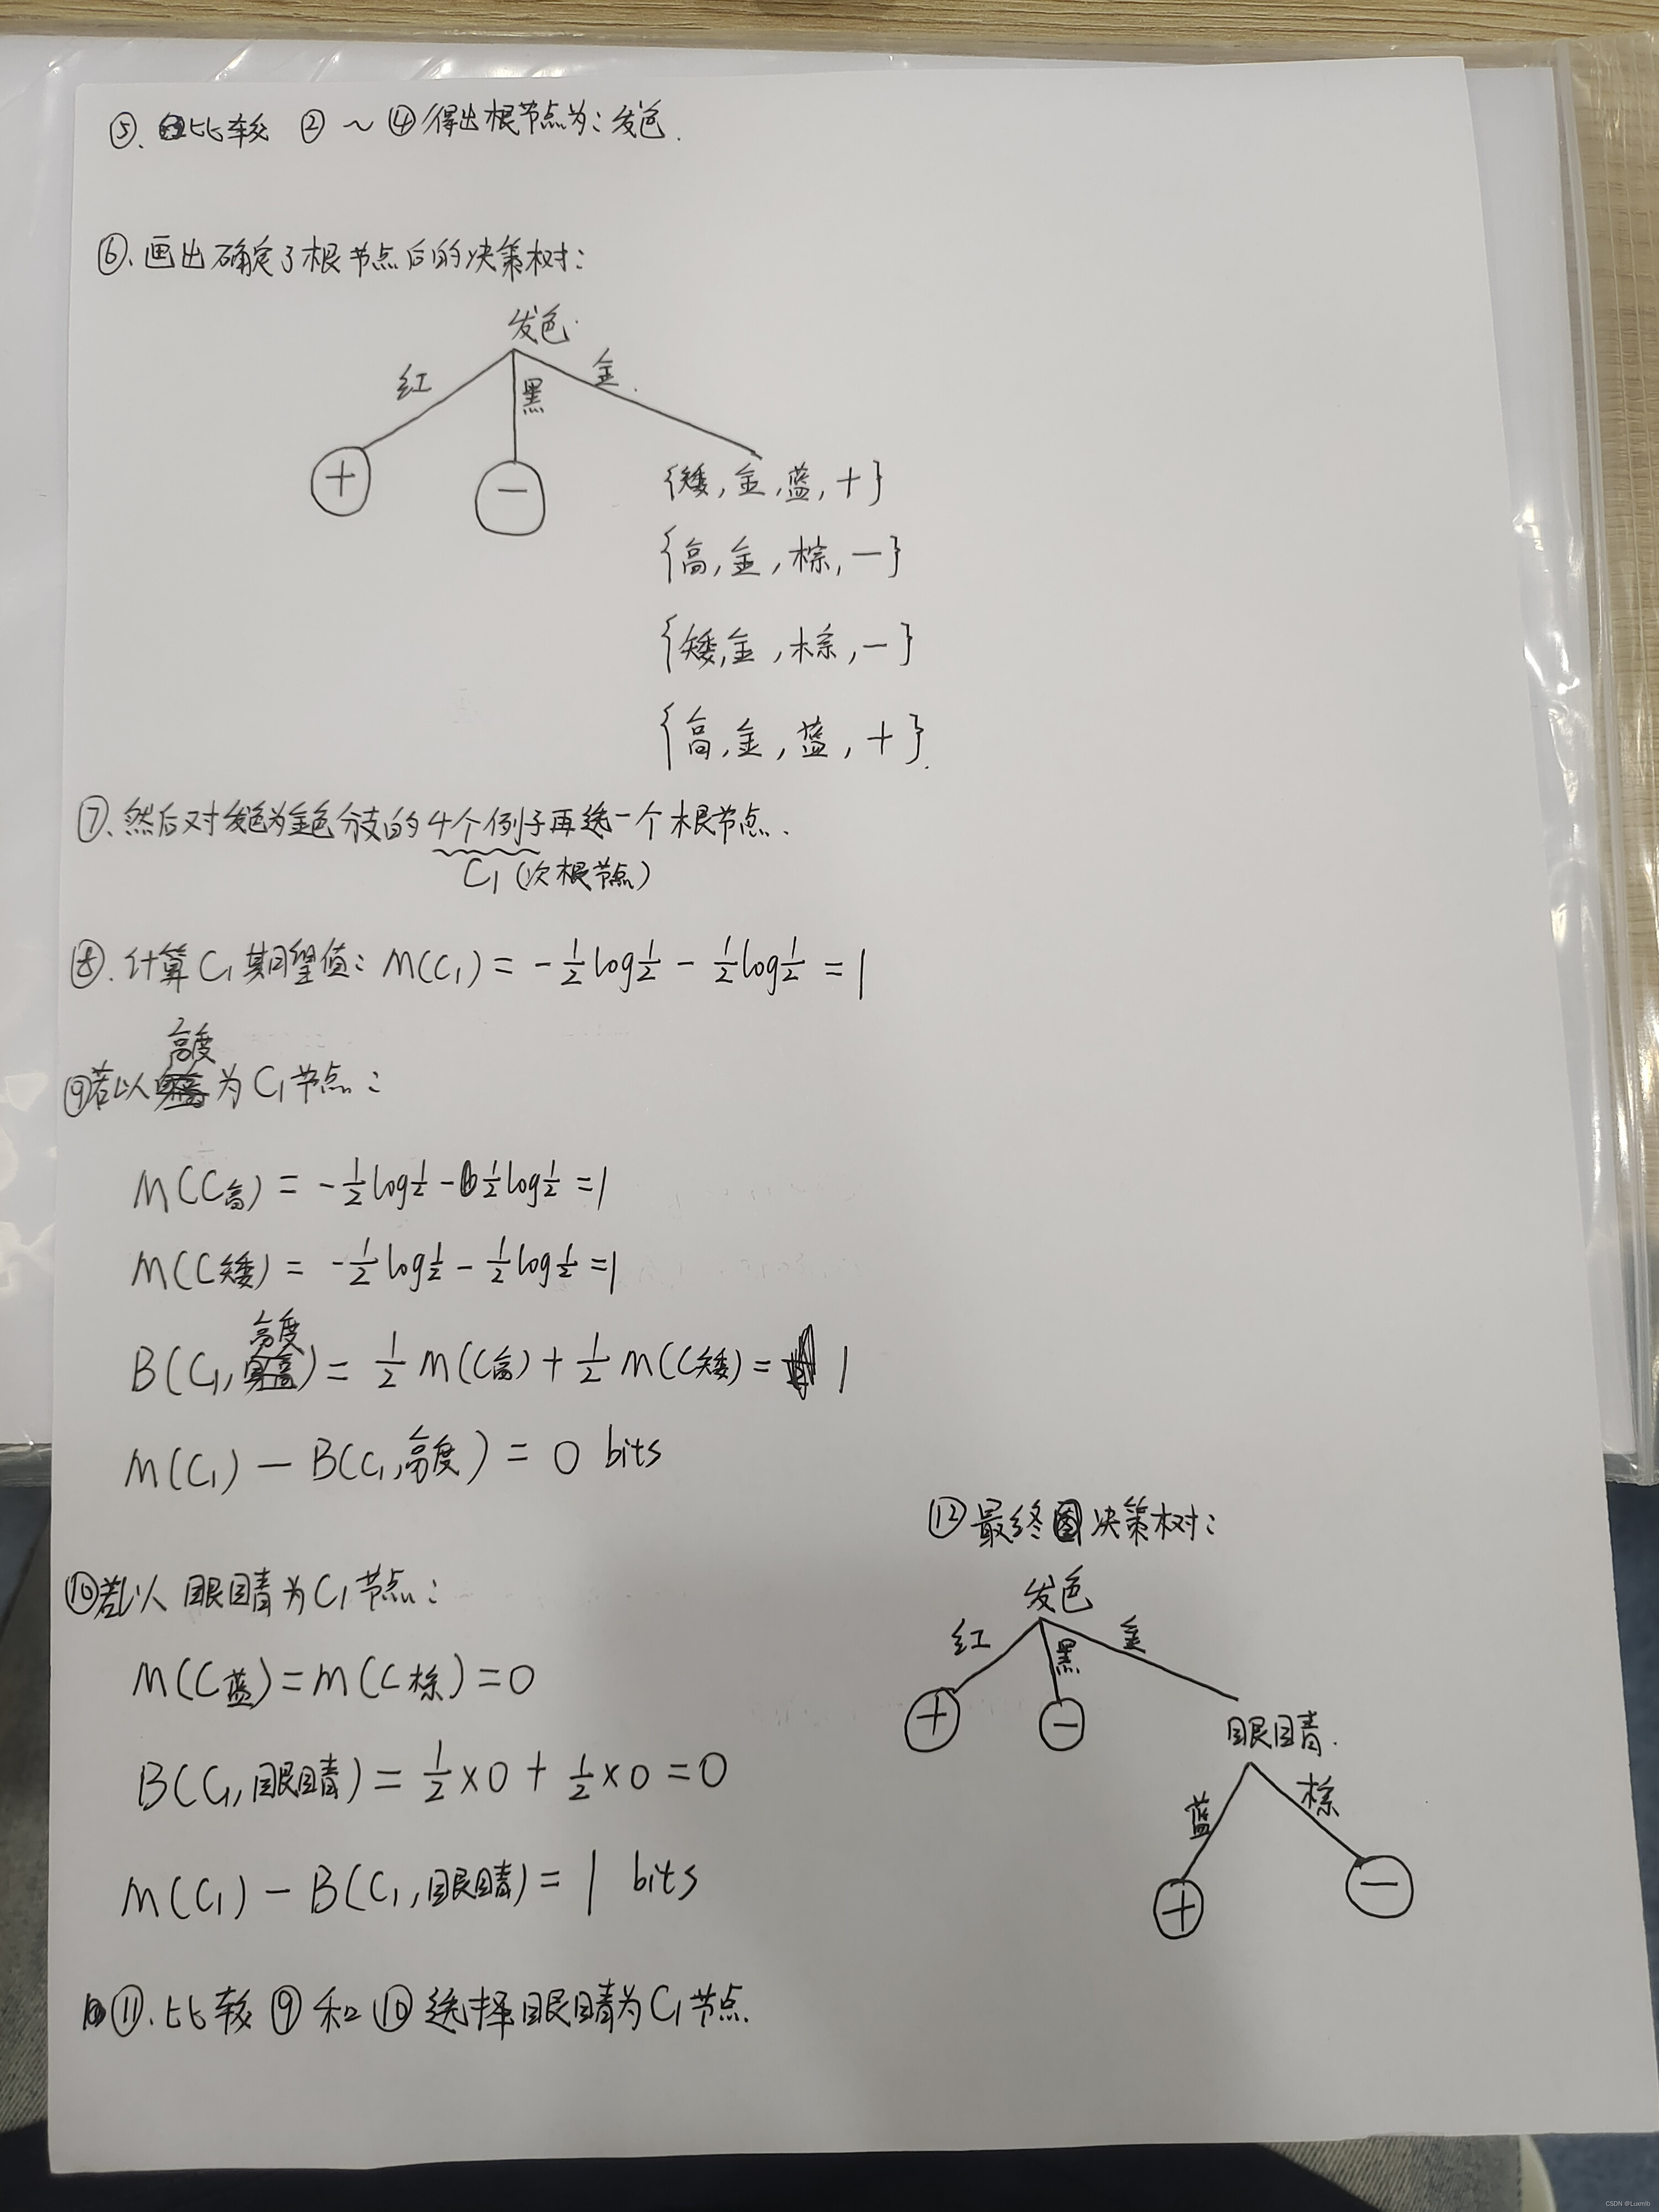 ⑤. 比较 ②～④得出根节点为：发色.
⑥. 画出确定了根节点后的决策树：
发色.
红 黑 金.
+ −
{矮, 金, 蓝, +}
{高, 金, 棕, −}
{矮, 金, 棕, −}
{高, 金, 蓝, +}.
⑦. 然后对发色为金色分支的4个例子再选一个根节点.
C₁ (次根节点)
⑧. 计算C₁期望值: M(C₁) = -1/2 log 1/2 - 1/2 log 1/2 = 1
高度
⑨若以 为C₁节点：
M(C高) = -1/2 log 1/2 - 1/2 log 1/2 = 1
M(C矮) = -1/2 log 1/2 - 1/2 log 1/2 = 1
高度
B(C₁, ) = 1/2 M(C高) + 1/2 M(C矮) = 1
M(C₁) - B(C₁,高度) = 0 bits
⑩若以 眼睛为C₁节点：
M(C蓝) = M(C棕) = 0
B(C₁,眼睛) = 1/2 × 0 + 1/2 × 0 = 0
M(C₁) - B(C₁,眼睛) = 1 bits
⑪. 比较 ⑨ 和 ⑩ 选择眼睛为C₁节点.
⑫ 最终 决策树：
发色
红 黑 金
+ −
眼睛.
蓝 棕
+ −
CSDN @Luxmlb